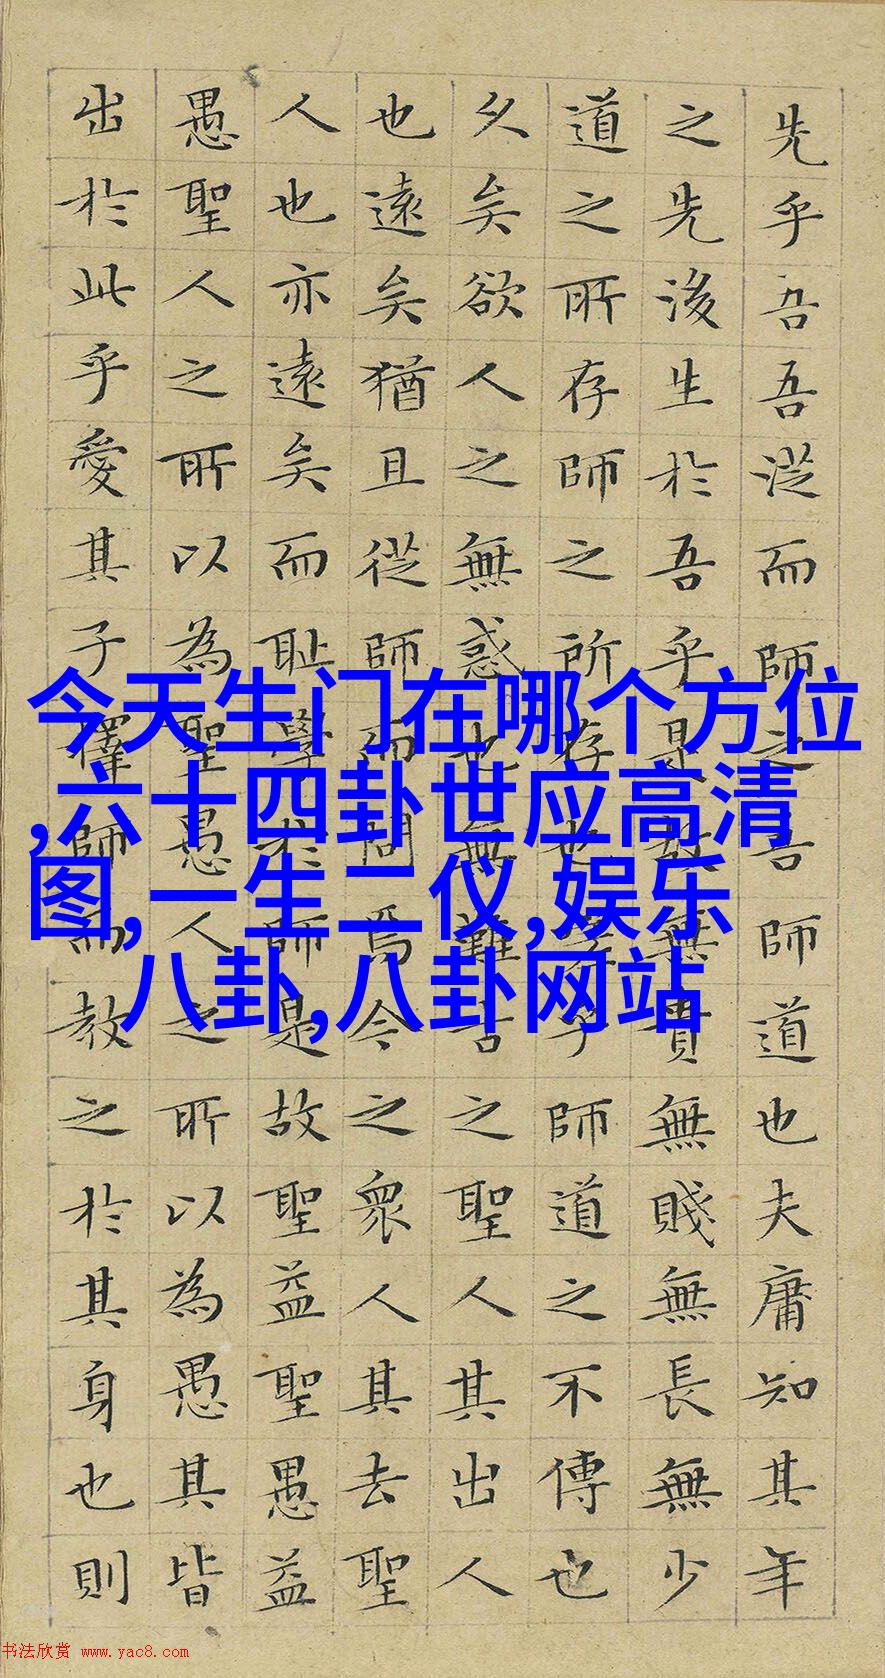 先乎吾吾從而師之吾師道也夫庸知其年
之先後生於吾乎是故無貴無賤無長無少
道之所存師之所存也嗟乎師道之不傳也
久矣欲人之無惑也無難古之聖人其出人
也遠矣猶且從師而問焉今之衆人其去聖
人也亦遠矣而耻學於師是故聖益聖愚益
愚聖人之所以為聖愚人之所以為愚其皆
出於此乎愛其子擇師而教之於其身也則
今天生门在哪个方位
,六十四卦世应高清
图,一生二仪,娱乐
八卦,八卦网站
书法欣赏 www.yac8.com